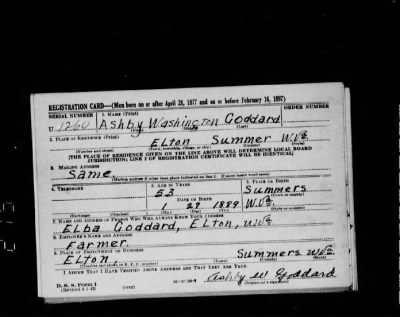 REGISTRATION CARD—(Men born on or after April 28, 1877 and on or before February 16, 1897)
SERIAL NUMBER 1. NAME (Print) ORDER NUMBER
U 1260 Ashby Washington Goddard
(First) (Middle) (Last)
2. PLACE OF RESIDENCE (Print)
ELton Summer W.Va.
(Number and street) (Town, township, village, or city) (County) (State)
[THE PLACE OF RESIDENCE GIVEN ON THE LINE ABOVE WILL DETERMINE LOCAL BOARD
JURISDICTION; LINE 2 OF REGISTRATION CERTIFICATE WILL BE IDENTICAL]
3. MAILING ADDRESS
Same.
[Mailing address if other than place indicated on line 2. If same insert word same]
4. TELEPHONE 5. AGE IN YEARS 6. PLACE OF BIRTH
53 Summers
DATE OF BIRTH (Town or county)
1 29 1889 W.Va.
(Exchange) (Number) (Mo.) (Day) (Yr.) (State or country)
7. NAME AND ADDRESS OF PERSON WHO WILL ALWAYS KNOW YOUR ADDRESS
ELba Goddard, ELton, W.Va
8. EMPLOYER'S NAME AND ADDRESS
Farmer.
9. PLACE OF EMPLOYMENT OR BUSINESS
ELton, Summers W.Va.
(Number and street or R. F. D. number) (Town) (County) (State)
I AFFIRM THAT I HAVE VERIFIED ABOVE ANSWERS AND THAT THEY ARE TRUE.
D. S. S. FORM 1
(Revised 4-1-42) (over) Ashby W Goddard
(Registrant's signature)